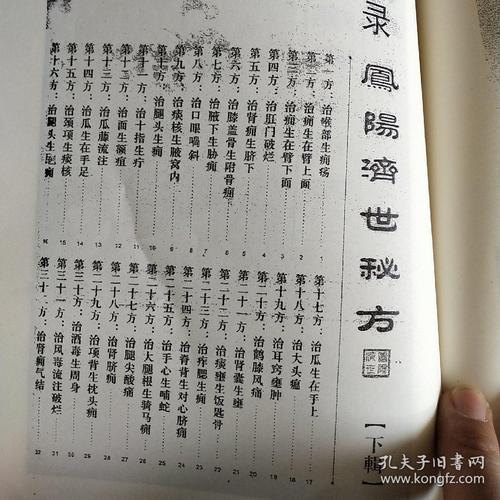 录 鳳陽濟世秘方
【下輯】
第一方：治喉部生痈疡 1
第二方：治痈生在臂上面 2
第三方：治痈生在臂下面 3
第四方：治肛门破烂 4
第五方：治肾痈生脐下 5
第六方：治膝盖骨生附骨痈 6
第七方：治腋下生胁痈 7
第八方：治口眼喎斜 8
第九方：治痰核生腋窝内 9
第十方：治腿头生痈
第十一方：治十指生疔 11
第十二方：治面生颧疽 12
第十三方：治瓜藤流注 13
第十四方：治瓜生在手足 14
第十五方：治颈项生痰核 15
第十六方：治腿头生 痈
第十七方：治瓜生在手上 17
第十八方：治大头瘟 18
第十九方：治耳窍壅肿 19
第二十方：治鹤膝风痛 20
第二十一方：治肾囊生壅 21
第二十二方：治痰壅生饭匙骨 22
第二十三方：治痄腮生痈 23
第二十四方：治脊背生对心脐痈 24
第二十五方：治手心生哺蛇 25
第二十六方：治大腿根生骑马痈 26
第二十七方：治腿尖酸痛 27
第二十八方：治肾脐痈 28
第二十九方：治项背生枕头痈 29
第三十方：治酒毒生周身 30
第三十一方：治风毒流注破烂 31
第三十二方：治肾痈气结 32
孔夫子旧书网